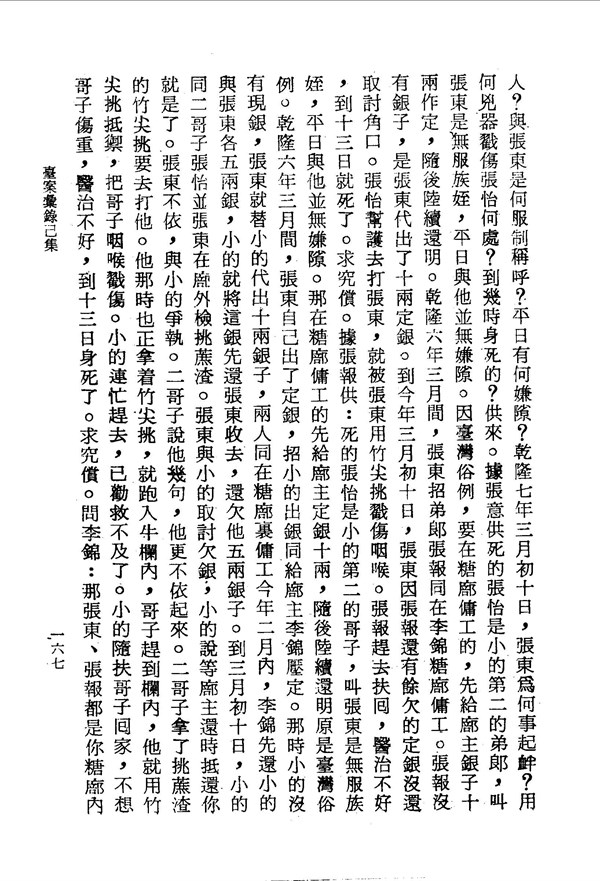 人？與張東是何服制稱呼？平日有何嫌隙？乾隆七年三月初十日，張東爲何事起衅？用
何兇器戳傷張怡何處？到幾時身死的？供來。據張意供死的張怡是小的第二的弟郎，叫
張東是無服族姪，平日與他並無嫌隙。因臺灣俗例，要在糖廍傭工的，先給廍主銀子十
兩作定，隨後陸續還明。乾隆六年三月間，張東招弟郎張報同在李錦糖廍傭工。張報沒
有銀子，是張東代出了十兩定銀。到今年三月初十日，張東因張報還有餘欠的定銀沒還
取討角口。張怡幫護去打張東，就被張東用竹尖挑戳傷咽喉。張報趕去扶囘，醫治不好
，到十三日就死了。求究償。據張報供：死的張怡是小的第二的哥子，叫張東是無服族
姪，平日與他並無嫌隙。那在糖廍傭工的先給廍主定銀十兩，隨後陸續還明原是臺灣俗
例。乾隆六年三月間，張東自己出了定銀，招小的出銀同給廍主李錦壓定。那時小的沒
有現銀，張東就替小的代出十兩銀子，兩人同在糖廍裏傭工今年二月內，李錦先還小的
與張東各五兩銀，小的就將這銀先還張東收去，還欠他五兩銀子。到三月初十日，小的
同二哥子張怡並張東在廍外檢挑蔗渣。張東與小的取討欠銀，小的說等廍主還時抵還你
就是了。張東不依，與小的爭執。二哥子說他幾句，他更不依起來。二哥子拿了挑蔗渣
的竹尖挑要去打他。他那時也正拿着竹尖挑，就跑入牛欄內，哥子趕到欄內，他就用竹
尖挑抵禦，把哥子咽喉戳傷。小的連忙趕去，已勸救不及了。小的隨扶哥子囘家，不想
哥子傷重，醫治不好，到十三日身死了。求究償。問李錦：那張東、張報都是你糖廍內
臺案彙錄己集
一六七